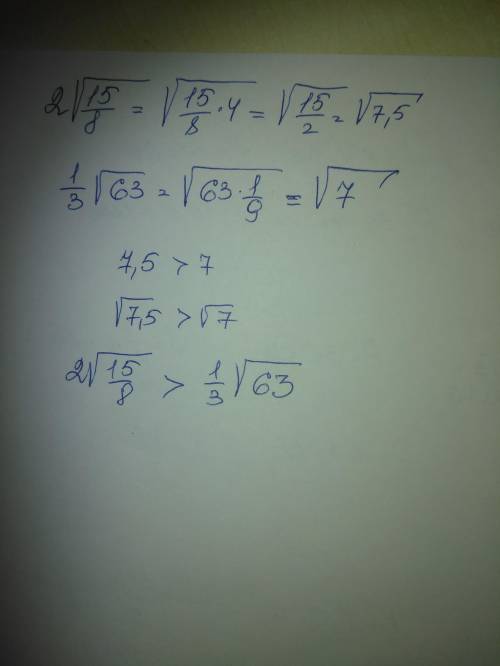 2√(15/8) = √(15/8 · 4) = √(15/2) = √7,5
1/3 √63 = √(63 · 1/9) = √7
7,5 > 7
√7,5 > √7
2√(15/8) > 1/3 √63